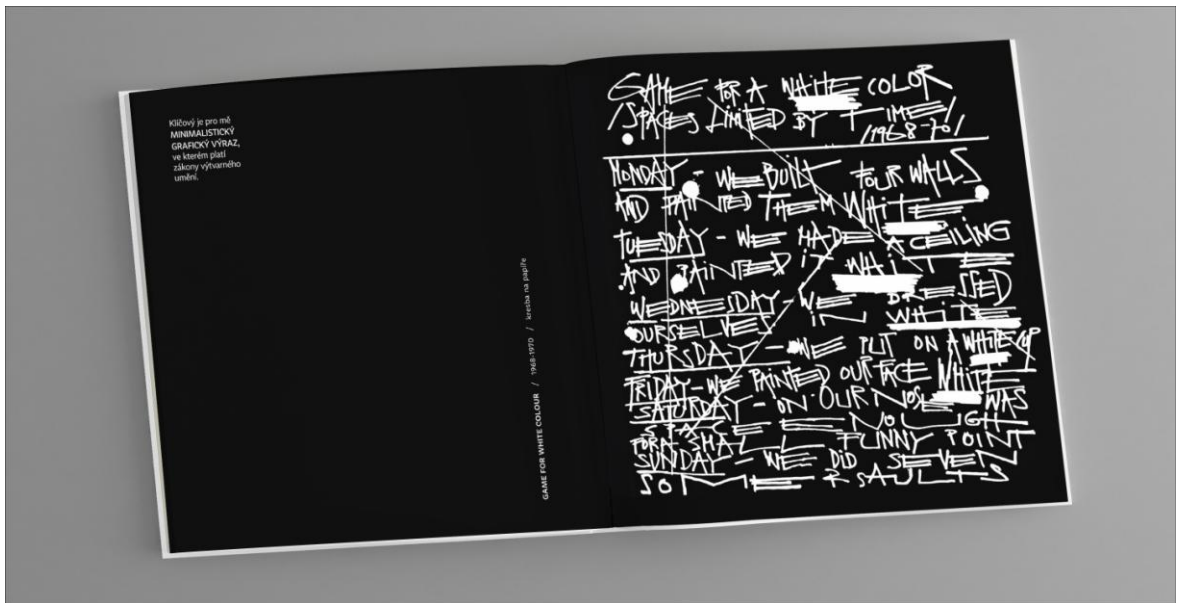 Klíčový je pro mě
MINIMALISTICKÝ
GRAFICKÝ VÝRAZ,
ve kterém platí
zákony výtvarného
umění.
GAME FOR WHITE COLOUR / 1968-1970 / kresba na papíře
GAME FOR A WHITE COLOR
/SPACES LIMITED BY TIME/
/1968-70/
MONDAY - WE BUILT FOUR WALLS
AND PAINTED THEM WHITE
TUESDAY - WE MADE A CEILING
AND PAINTED IT WHITE
WEDNESDAY - WE DRESSED
OURSELVES IN WHITE
THURSDAY - WE PUT ON A WHITE CUP
FRIDAY - WE PAINTED OUR FACE WHITE
SATURDAY - ON OUR NOSE WAS
SPACE ENOUGH
FOR A SMALL FUNNY POINT
SUNDAY - WE DID SEVEN
SOMERSAULTS